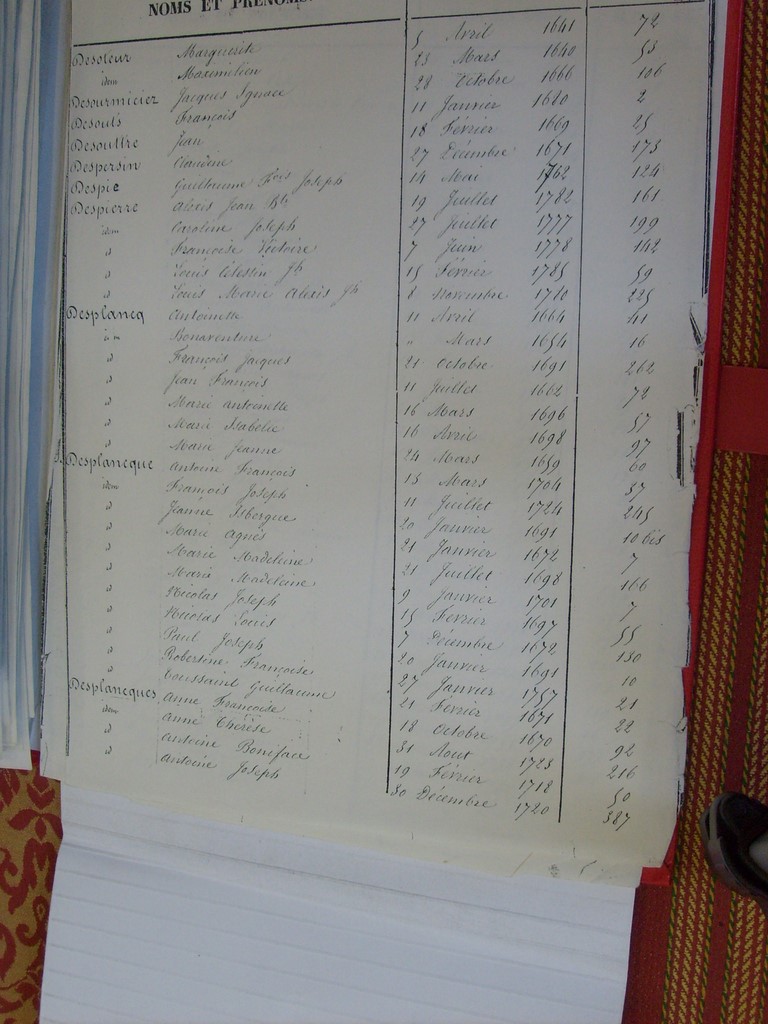 NOMS ET PRÉNOMS.
Desoleur Marguerite 5 Avril 1641 72
idem Maximilien 23 Mars 1640 53
Desourmiciez Jacques Ignace 28 Octobre 1666 106
Desouts François 11 Janvier 1680 2
Desouttre Jean 18 Février 1669 25
Despersin Claudine 27 Décembre 1671 173
Despic Guillaume Fois Joseph 14 Mai 1762 124
Despierre Alexis Jean Bte 19 Juillet 1782 161
idem Caroline Joseph 27 Juillet 1777 199
d Françoise Victoire 7 Juin 1778 142
d Louis Célestin Jh 15 Février 1785 59
d Louis Marie Alexis Jh 8 Novembre 1780 225
Desplancq Antoinette 11 Avril 1664 41
idem Bonaventure " Mars 1654 16
d François Jacques 21 Octobre 1691 262
d Jean François 11 Juillet 1662 72
d Marie Antoinette 16 Mars 1696 57
d Marie Isabelle 16 Avril 1698 97
d Marie Jeanne 24 Mars 1659 60
Desplancque Antoine François 13 Mars 1704 37
idem François Joseph 11 Juillet 1724 245
d Jeanne Isbergue 20 Janvier 1691 10 bis
d Marie Agnès 21 Janvier 1672 7
d Marie Madeleine 21 Juillet 1698 166
d Marie Madeleine 9 Janvier 1701 7
d Nicolas Joseph 15 Février 1697 55
d Nicolas Louis 7 Décembre 1672 130
d Paul Joseph 20 Janvier 1691 10
d Robertine Françoise 27 Janvier 1757 21
d Toussaint Guillaume 21 Février 1671 22
Desplancques Anne Françoise 18 Octobre 1670 92
idem Anne Thérèse 31 Aout 1723 216
d Antoine Boniface 19 Février 1718 50
d Antoine Joseph 30 Décembre 1720 387